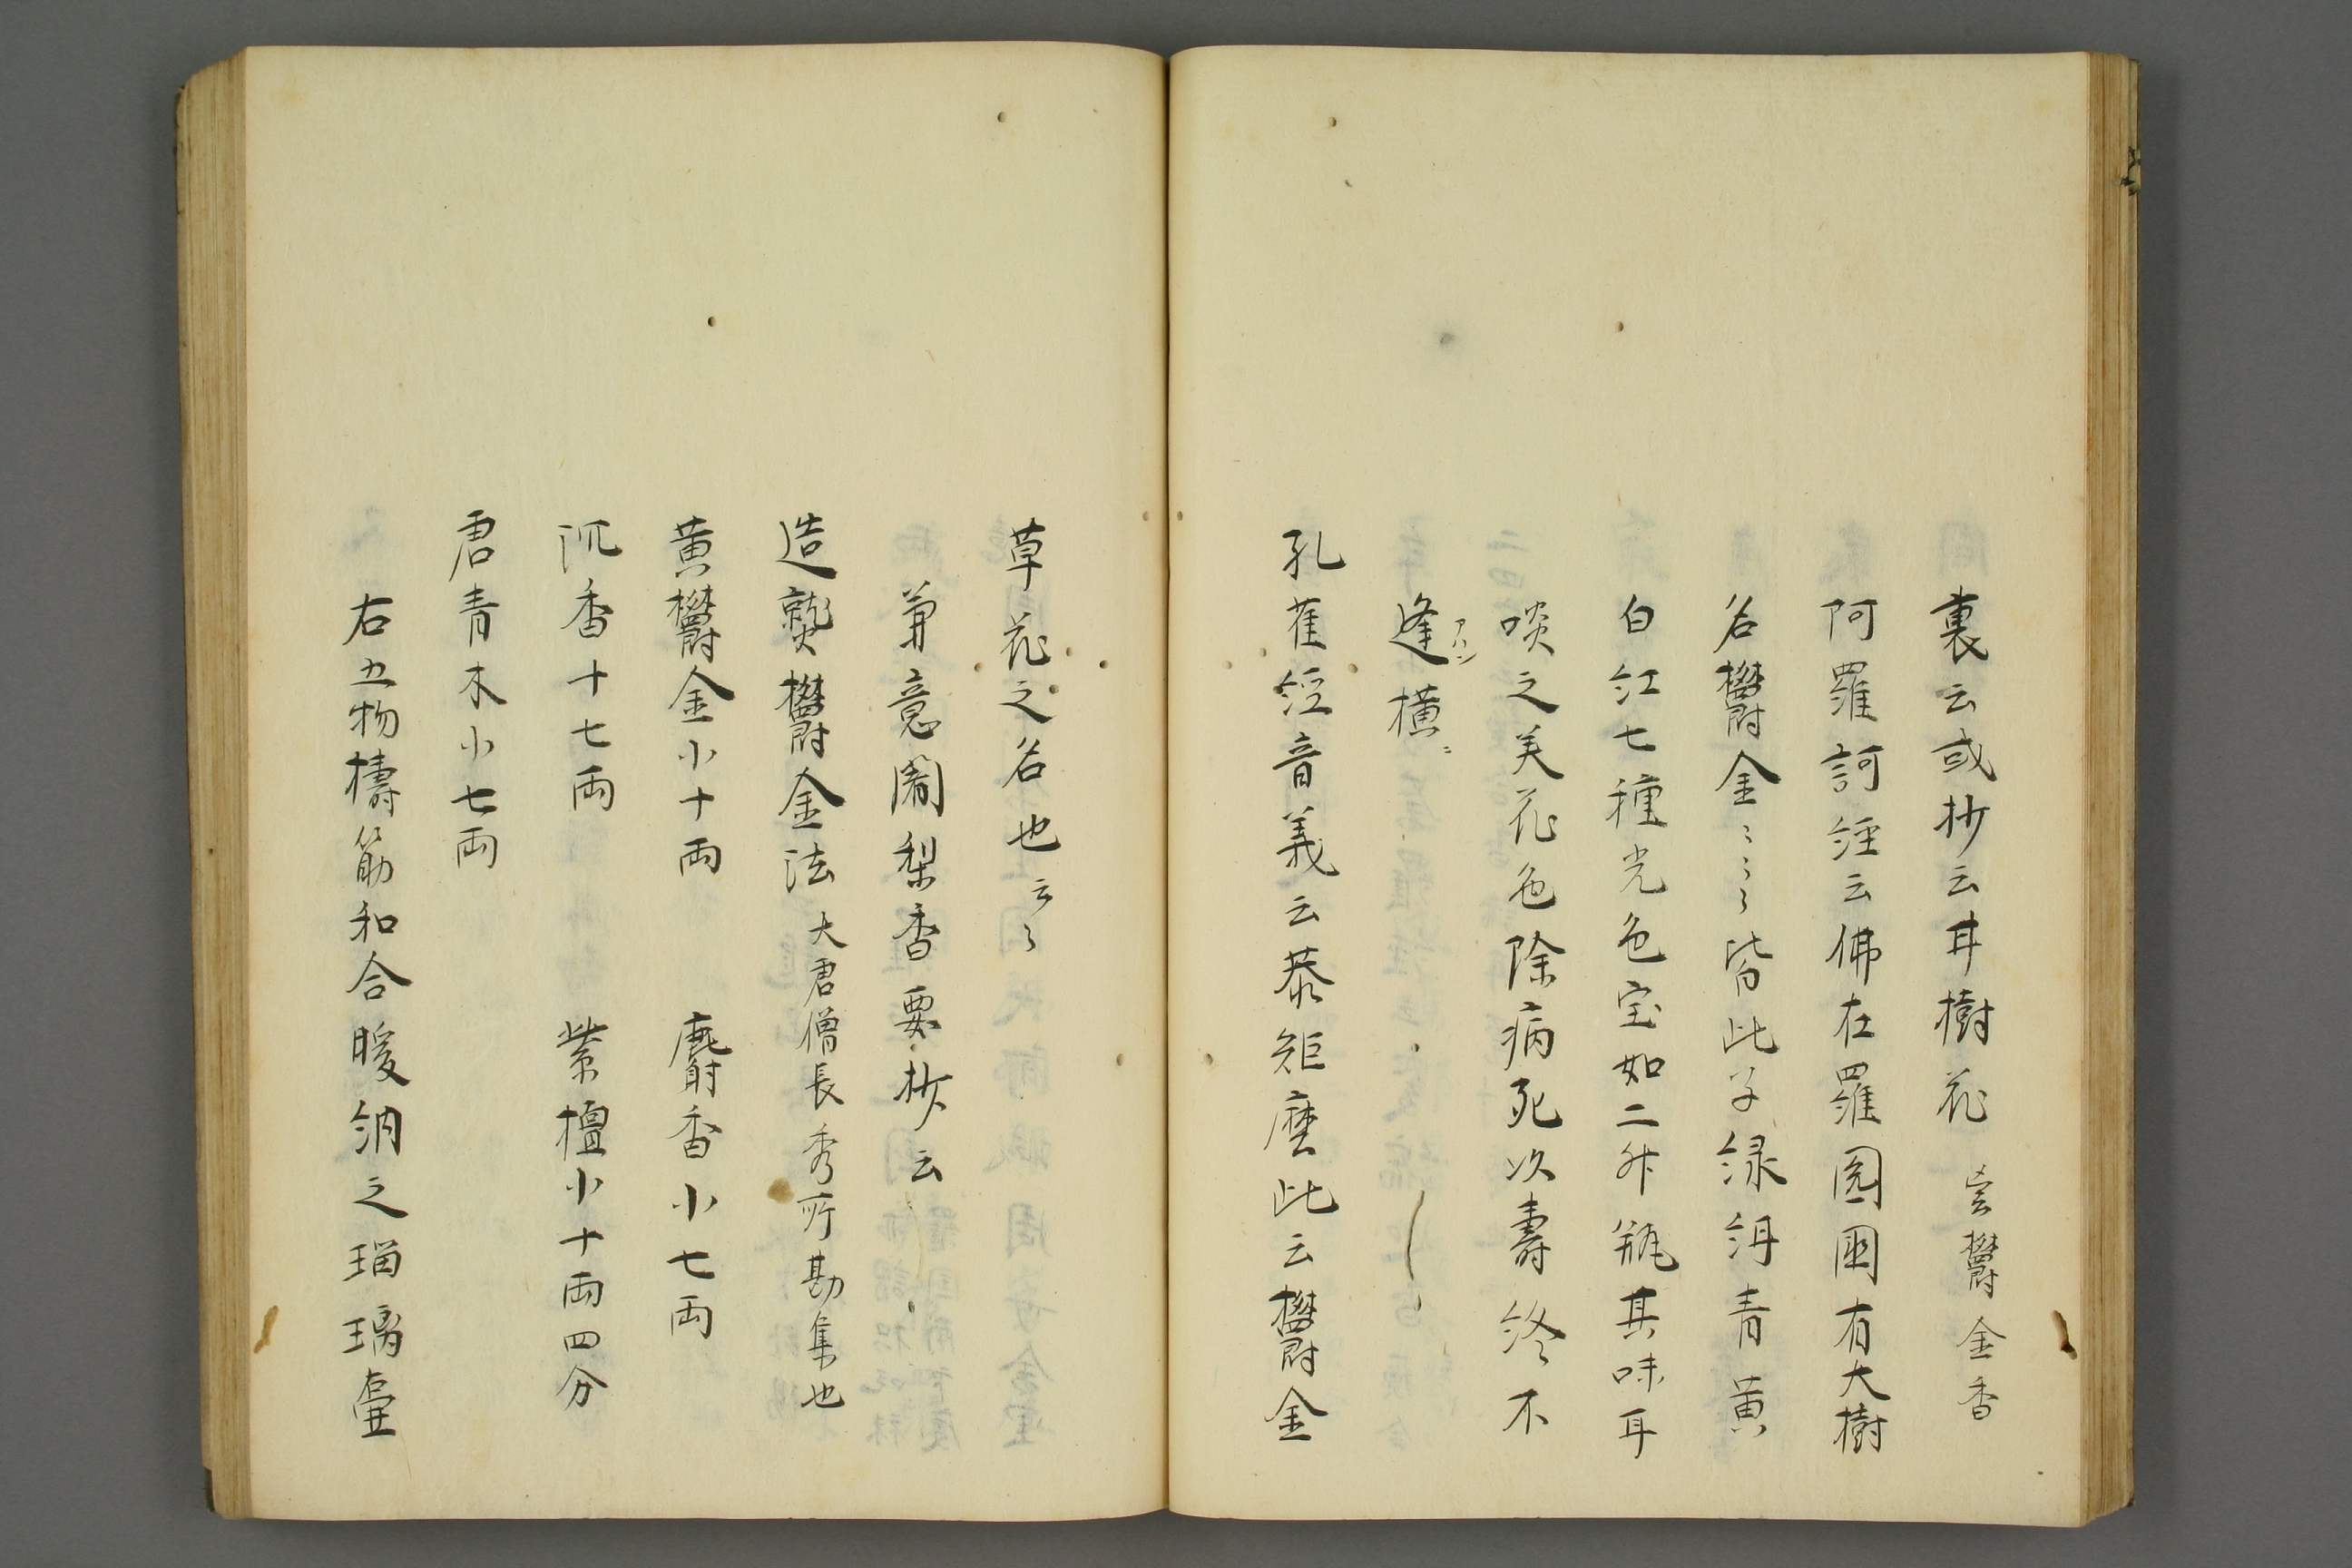 裏云或抄云丼樹花 鬱金香
阿羅訶経云佛在羅閲国有大樹
名鬱金〻〻〻皆此子緑汁青黄
白紅七種光色宝如二升瓶其味耳
啖之美花色除病死次壽終不
逢橫〻
アハシ
孔雀経音義云荼矩麼此云鬱金
草花之名也云〻
兼意闍梨香要抄云
造熱鬱金法 大唐僧長秀所勘集也
黄鬱金小十両 麝香小七両
沉香十七両 紫檀小十両四分
唐青木小七両
右五物擣篩和合暖納之瑠璃壷